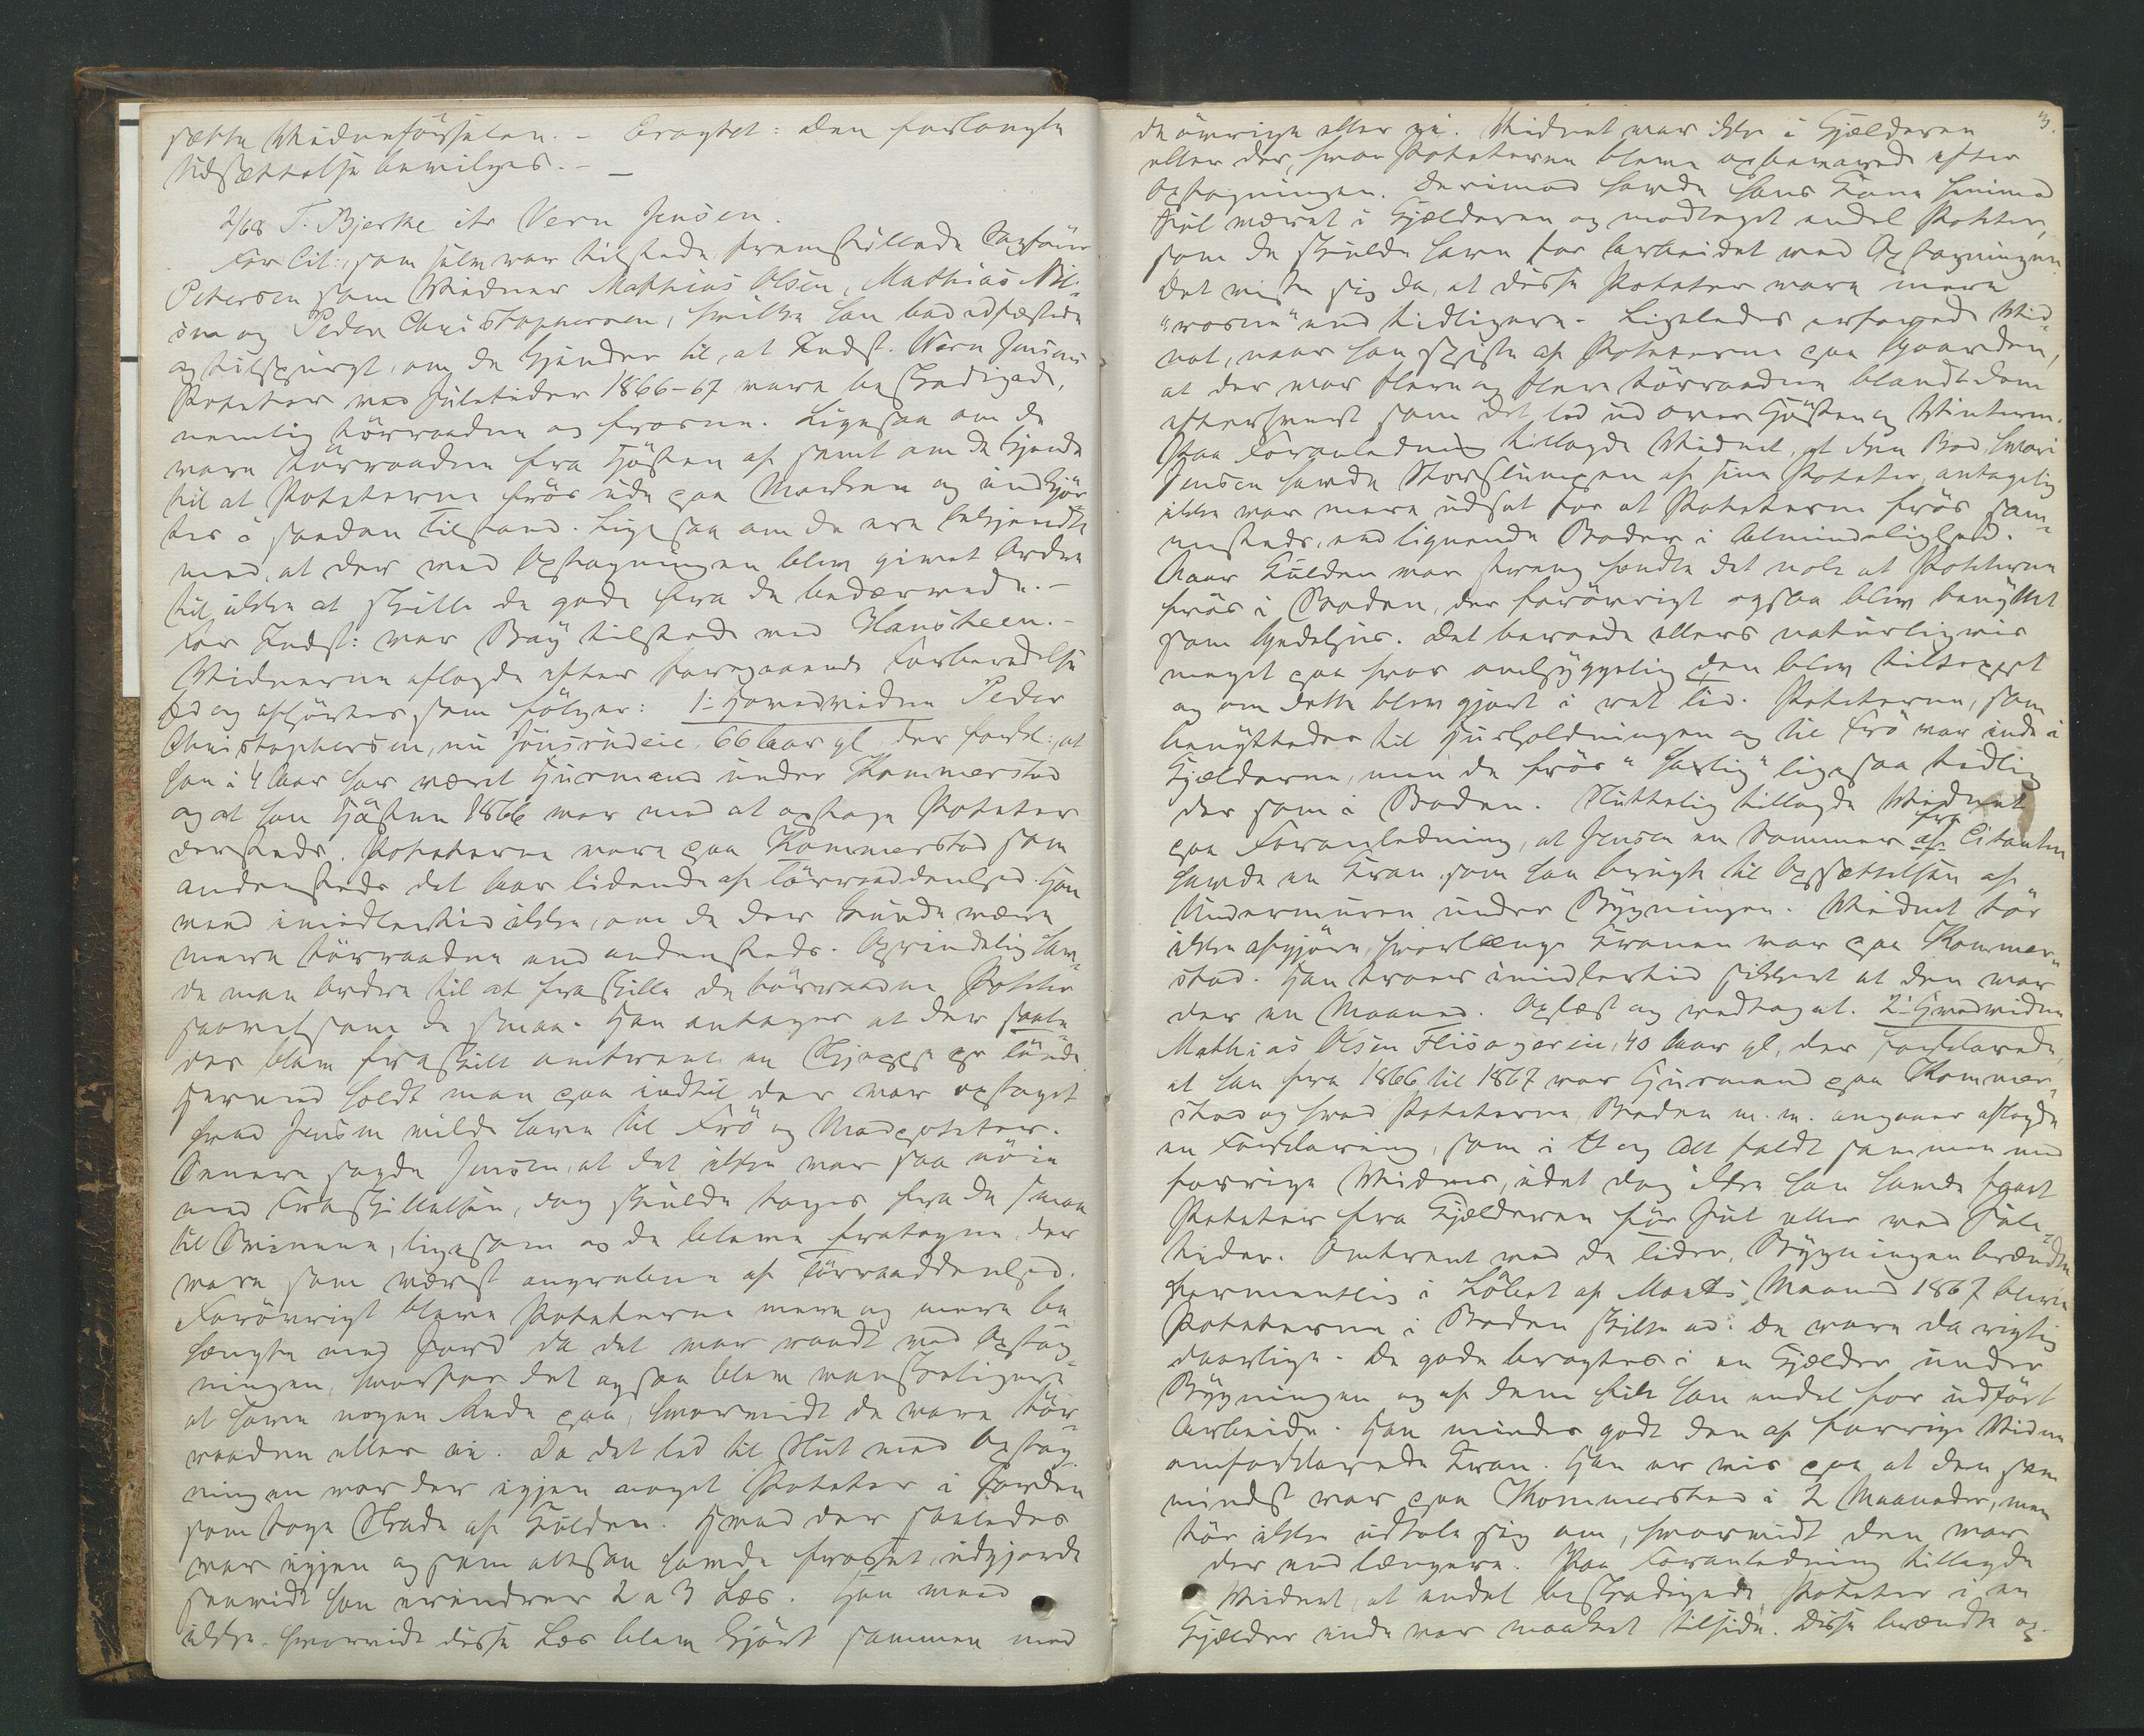 sætte Vidneførselen. – Eragtet: Den forlangte
Udsættelse bevilges. –
2/68 T. Bjerke ctr Vern Jensen.
For Cit:, som selv var tilstede fremstillede Sagfører
Petersen som Vidner Mathias Olsen, Mathias Nil-
sen og Peder Christophersen, hvilke han bad edfæstede
og tilspurgt, om de kjender til, at Indst. Vern Jensens
Poteter ved Juletider 1866-67 vare beskadigede,
nemlig tørraadne og frosne. Ligesaa om de
vare tørraadne fra Høsten af samt om de kjende
til at Poteterne frøs ude paa Marken og indkjør-
tes i saadan Tilstand. Ligesaa om de ere bekjendte
med, at der ved Optagningen blev givet Ordre
til ikke at skille de gode fra de bedærvede. –
For Indst: var Bay tilstede med Hansteen. –
Vidnerne aflagde efter foregaaende Forberedelse
Ed og afhørtes som følger: 1ste Hovedvidne Peder
Christophersen, nu Jonsrudeie, 66 Aar gl. der forkl: at
han i 4 Aar har været Husmand under Kommerstad
og at han Høsten 1866 var med at optage Poteter
dersteds. Poteterne vare paa Kommerstad som
andensteds det Aar lidende af Tørraaddenhed. Han
veed imidlertid ikke, om de der kunde være
mere tørraadne end andensteds. Oprindelig hav-
de man Ordre til at fraskille de tørraadne Poteter
saavelsom de smaa. Han antager at der saale-
des blev fraskilt omtrent en Skjæppe pr Tønde.
Hermed holdt man paa indtil der var optaget
hvad Jensen vilde have til Frø og Madpoteter.
Senere sagde Jensen, at det ikke var saa nøie
med Fraskillelsen, dog skulde tages fra de smaa
til Svinene, ligesom og de bleve fratagne, der
vare som værst angrebne af Tørraaddenhed.
Forøvrigt bleve Poteterne mere og mere be
hængte med Jord da det var vaadt ved Optag-
ningen, hvorfor det ogsaa blev vanskeligere
at have nogen Rede paa, hvorvidt de vare tør-
raadne eller ei. Da det led til Slut med Optag-
ningen var der igjen noget Poteter i Jorden
som toge Skade af Kulden. Hvad der saaledes
var igjen og som altsaa havde frosset, udgjorde
saavidt han erindrer 2 a 3 Læs. Han veed
ikke hvorvidt disse Læs blev kjørt sammen med
3.
de øvrige eller ei. Vidnet var ikke i Kjælderen
eller der, hvor Poteterne bleve opbevarede efter
Optagningen. Derimod havde hans Kone henimod
Jul været i Kjælderen og modtaget endel Poteter,
som de skulde have for Arbeidet med Optagningen.
Det viste sig da, at disse Poteter vare mere
"vosne" end tidligere. Ligeledes erfarede Vid-
net, naar han spiste af Poteterne paa Gaarden,
at der var flere og flere tørraadne blandt dem
eftersom det led ud over Høsten og Vinteren.
Paa Foranledning tillagde Vidnet, at den Bod hvori
Jensen havde Storslumpen af sine Poteter, antagelig
ikke var mere udsat for at Poteterne frøs sam-
mesteds, end lignende Boder i Almindelighed.
Naar Kulden var streng hendte det nok at Poteterne
frøs i Boden, der forøvrigt ogsaa blev benyttet
som . Det beroede ellers naturligvis
meget paa hvor omhyggelig den blev tilstoppet
og om dette blev gjort i ret Tid. Poteterne, som
benyttedes til Husholdningen og til Frø var inde i
Kjælderne, men de frøs "hærlig" ligesaa tidlig
der som i Boden. Sluttelig tillagde Vidnet
paa Foranledning, at Jensen en Sommer af fra Citanten
havde en Kran, som han brugte til Opsættelsen af
Undermuren under Bygningen. Vidnet tør
ikke afgjøre, hvorlænge Kranen var paa Kommer-
stad. Han troer imidlertid sikkert at den var
der en Maaned. Oplæst og vedtaget. 2det Hovedvidne
Mathias Olsen Flisagereie, 40 Aar gl, der forklarede,
at han fra 1866 til 1867 var Husmand paa Kommer-
stad og hvad Poteterne, Boden m. m. angaaer aflagde
en Forklaring, som i Et og Alt faldt sammen med
forrige Vidnes, idet dog ikke han havde faaet
Poteter fra Kjælderen før Jul eller ved Jule-
tider. Omtrent ved de Tider, Bygningen brændte
formentlig i Løbet af Marts Maaned 1867 bleve
Poteterne i Boden skilte ad. De vare da rigtig
daarlige. De gode bragtes i en Kjælder under
Bygningen og af dem fik han endel for udført
Arbeide. Han mindes godt den af forrige Vidne
omforklarede Kran. Han er vis paa at den som
mindst var paa Kommerstad i 2 Maaneder, men
tør ikke udtale sig om, hvorvidt den var
der end længere. Paa Foranledning tillagde
Vidnet, at endel beskadigede Poteter i en
Kjælder inde var maaket tilside. Disse brændte op